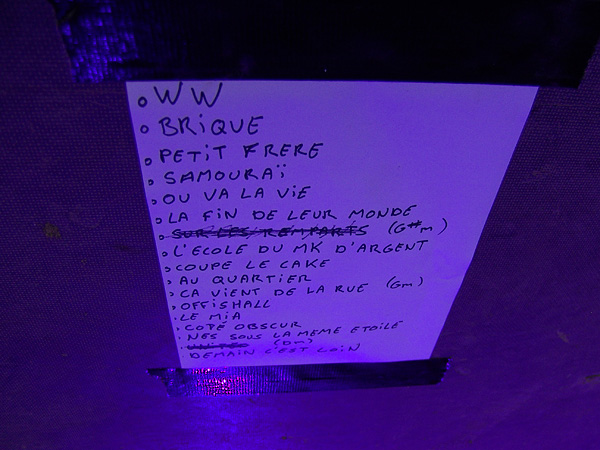 WW
BRiQUE
PETiT FRERE
SAMOURAÏ
OU VA LA ViE
LA FiN DE LEUR MONDE
SUR LES REMPARTS (G#m)
L'ECOLE DU MK D'ARGENT
COUPE LE CAKE
AU QUARTiER
CA VIENT DE LA RUE (Gm)
OFFiSHALL
LE MiA
COTÉ OBSCUR
NES SOUS LA MEME ETOiLE
UNiTED (Dm)
DEMAiN C'EST LOiN